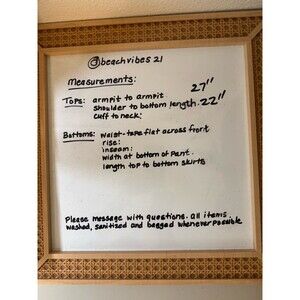 @beachvibes 21
Measurements:
Tops: armpit to armpit 27"
shoulder to bottom length. 22"
cuff to neck:
Bottoms: waist-tape flat across front
rise:
inseam:
width at bottom of pant.
length top to bottom skirts
Please message with questions. all items
washed, sanitized and bagged whenever possible